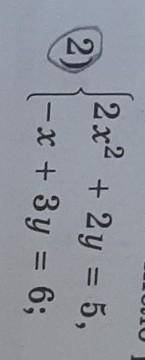 2) { 2x² + 2y = 5,
−x + 3y = 6;